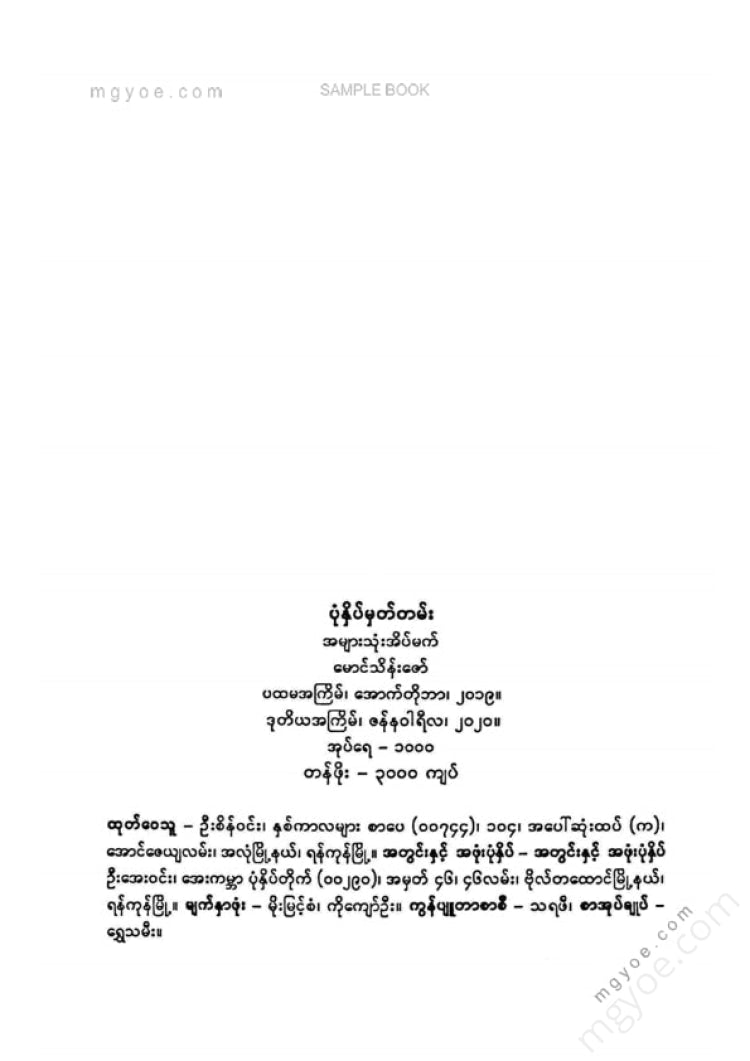 mgyoe.com SAMPLE BOOK
ပုံနှိပ်မှတ်တမ်း
အများသုံးအိပ်မက်
မောင်သိန်းဇော်
ပထမအကြိမ်၊ အောက်တိုဘာ၊ ၂၀၁၉။
ဒုတိယအကြိမ်၊ ဇန်နဝါရီလ၊ ၂၀၂၀။
အုပ်ရေ – ၁၀၀၀
တန်ဖိုး – ၃၀၀၀ ကျပ်
ထုတ်ဝေသူ – ဦးစိန်ဝင်း၊ နှစ်ကာလများ စာပေ (၀၀၇၄၄)၊ ၁၀၄၊ အပေါ်ဆုံးထပ် (က)၊
အောင်ဇေယျလမ်း၊ အလုံမြို့နယ်၊ ရန်ကုန်မြို့။ အတွင်းနှင့် အဖုံးပုံနှိပ် – အတွင်းနှင့် အဖုံးပုံနှိပ်
ဦးအေးဝင်း၊ အေးကမ္ဘာ ပုံနှိပ်တိုက် (၀၀၂၉၀)၊ အမှတ် ၄၆၊ ၄၆လမ်း၊ ဗိုလ်တထောင်မြို့နယ်၊
ရန်ကုန်မြို့။ မျက်နှာဖုံး – မိုးမြင့်စံ၊ ကိုကျော်ဦး။ ကွန်ပျူတာစာစီ – သရဖီ၊ စာအုပ်ချုပ် –
ရွှေသမီး။
mgyoe.com
mgyoe.com